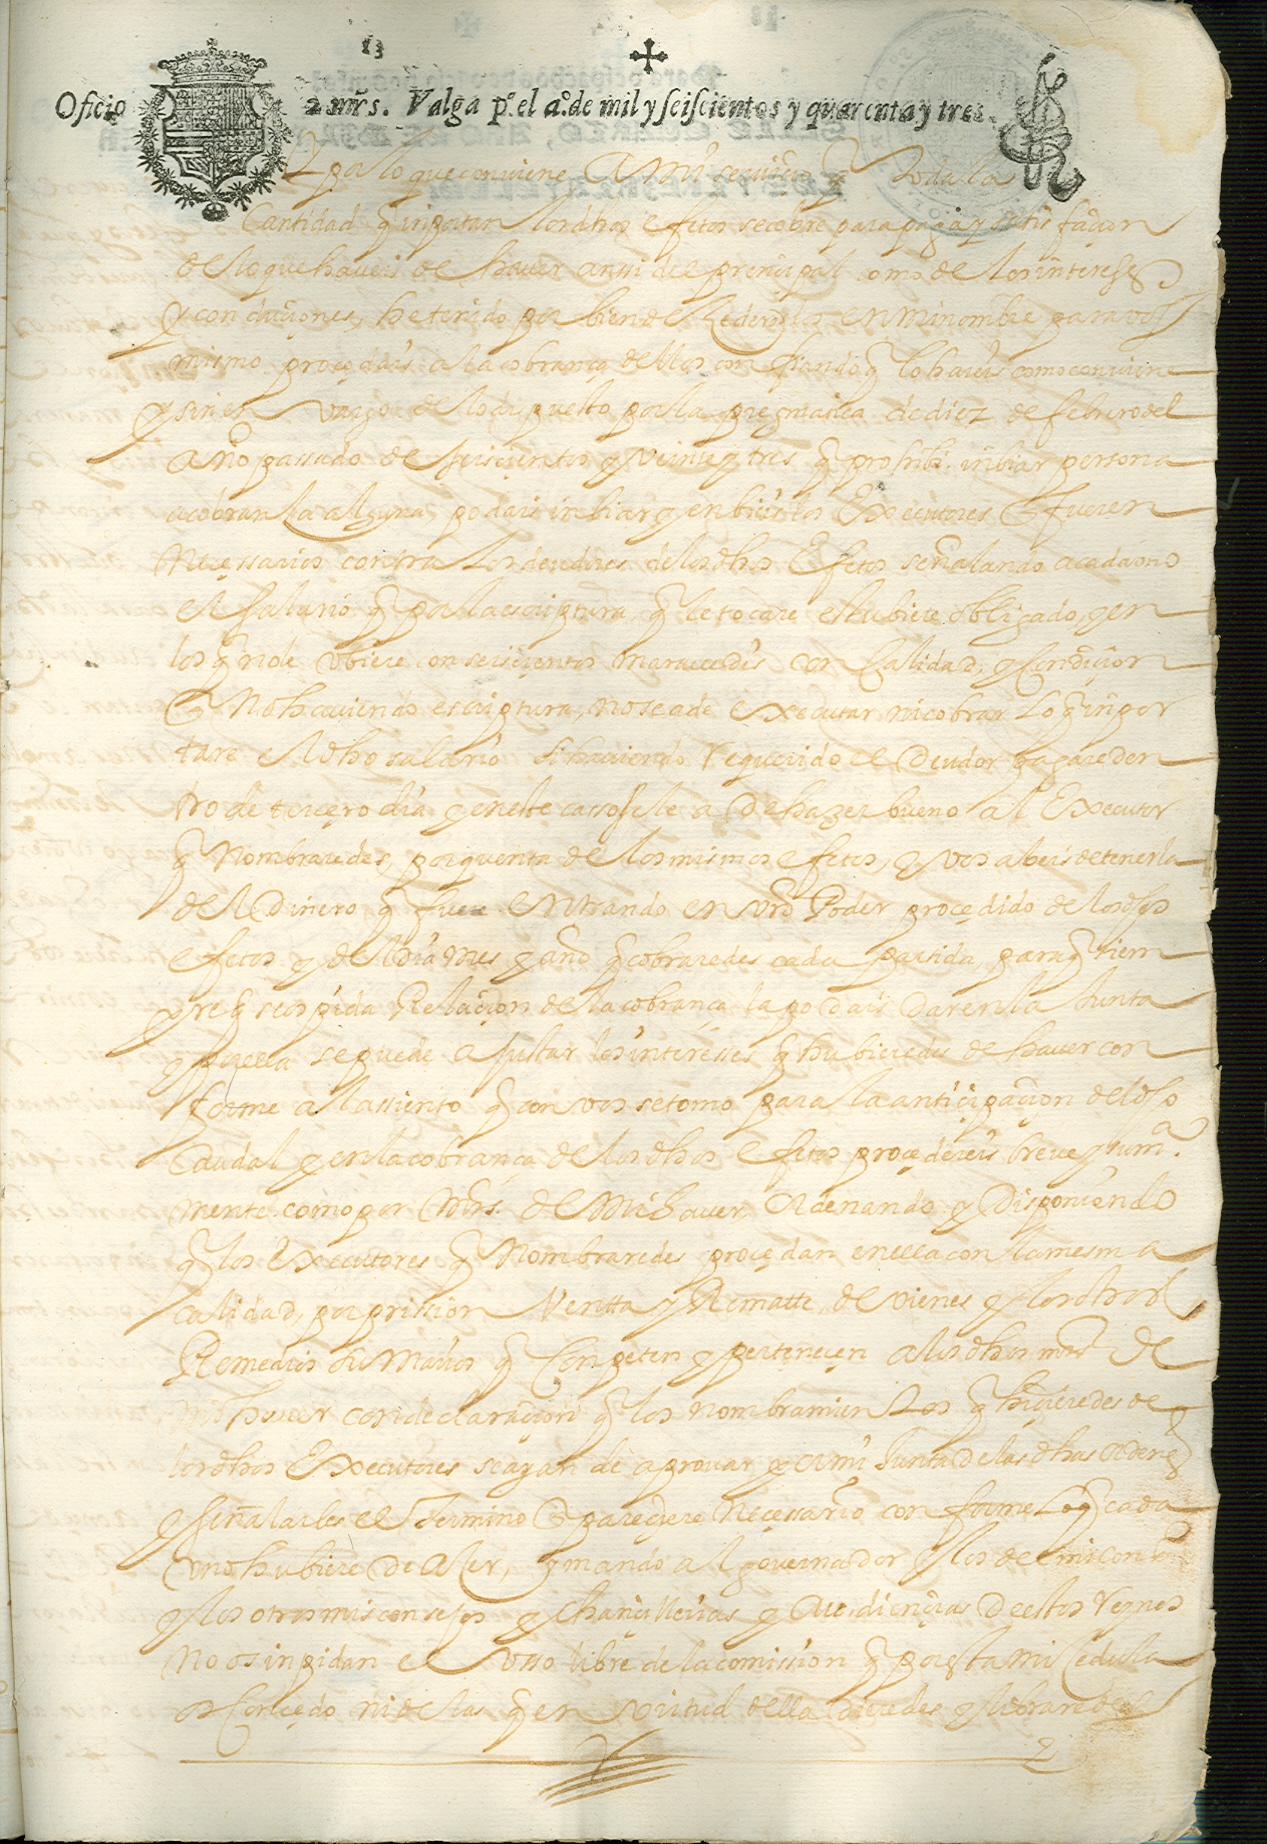 13
Oficio 2 mrs. Valga pº. el aº. de mil y seiscientos y quarenta y tres.
Y pº lo que conviene a mi servicio q toda la
Cantidad q inportan los dhos efetos se cobre para paga y satisfaçion
de lo que haveis de haver anssi del prençipal como de los intereses
y conduçiones, he tenido por bien de en mi nombre para vos
mismo proçedais a la cobrança dellos confiando q lo hareis como conviene
y sin en vargo de lo dispuesto por la pregmatica de diez de febrero del
Año passado de seiscientos y veinte y tres q prohibe inbiar persona
a cobranza alguna, podais inbiar y enbieis los Executores q fueren
Neçessarios contra los deudores de los dhos Efetos señalando a cada uno
el salario q por la escriptura q le tocare estubiere obligado, y en
los q no le ubiere con seiscientos maravedis con Calidad, y condiçion
q No haviendo escriptura, no se a de executar ni cobrar lo q inpor
tare el dho salario si haviendo requerido el Deudor pagare den
tro de terçero dia y en este casso se le a de hazer bueno al Executor
q Nombraredes, por quenta de los mismos efetos, y vos abeis de tenerla
del Dinero q fuere entrando en vro Poder proçedido de los dhos
efetos y del dia mes y año q cobraredes cada partida para q siem
pre q se os pida Relaçion de la cobrança la podais dar en la Junta
y por ella se puede ajustar los interesses q hubieredes de haver con
forme al assiento q con vos se tomo para la antiçipaçion del dho
Caudal y en la cobrança de los dhos efetos proçedereis breve y sum.
mente como por Mrs. de Mi haver Ordenando y Disponiendo
q los Executores q Nombraredes proçedan en ella con la mesma
calidad, por prission Ventta y Rematte de vienes y los dhos
Remedios sumarios q Conpeten y perteneçen a los dhos mrs de
mi haver con declaraçion q los nombramientos q hiçieredes de
los dhos Executores se ayan de aprovar por mi Junta de las dhas
y señalarles el Termino q pareçiere Neçessario con forme lo q cada
uno hubiere de aser, y mando al governador y los de mi conss
y los otros mis consejos y Chançillerias y Audiençias De estos reynos
No os inpidan el usso libre de la comission q por esta mi Çedula
os Conçedo ni de las q en virtud della dieredes y librare des